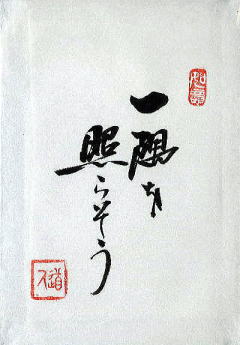 一隅を
照らそう